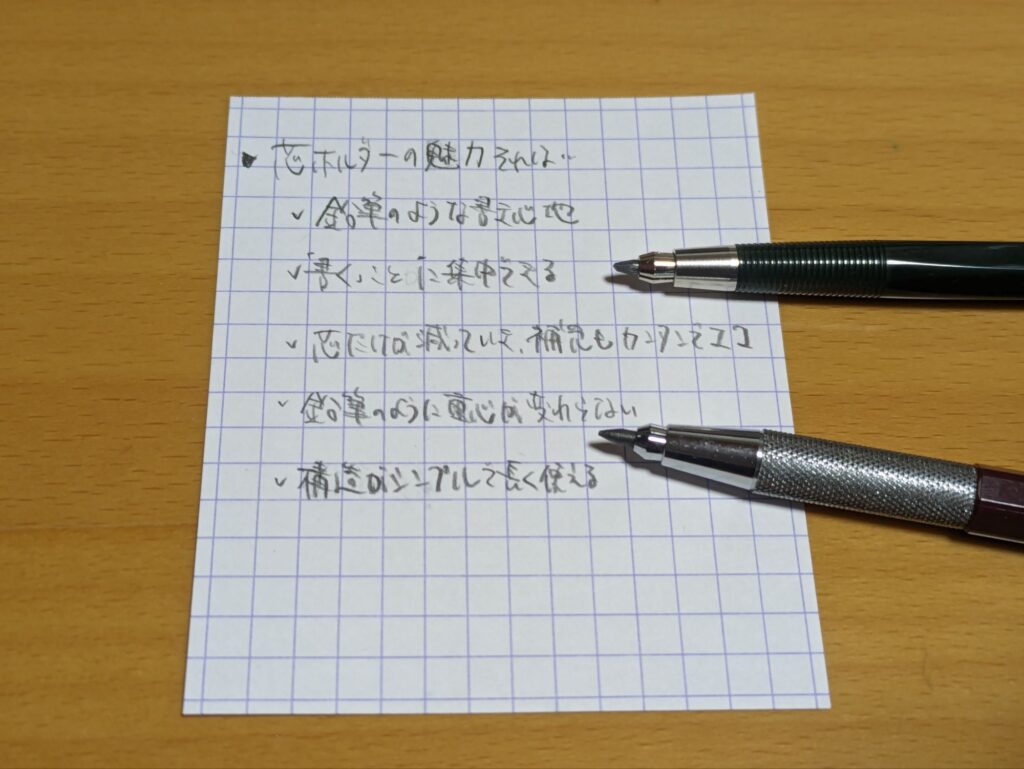 ▶ 芯ホルダーの魅力それは…
✓ 鉛筆のような書き心地
✓ 「書く」ことに集中できる
✓ 芯だけが減っていて、補充もカンタンでエコ
✓ 鉛筆のように重心が変わらない
✓ 構造がシンプルで長く使える